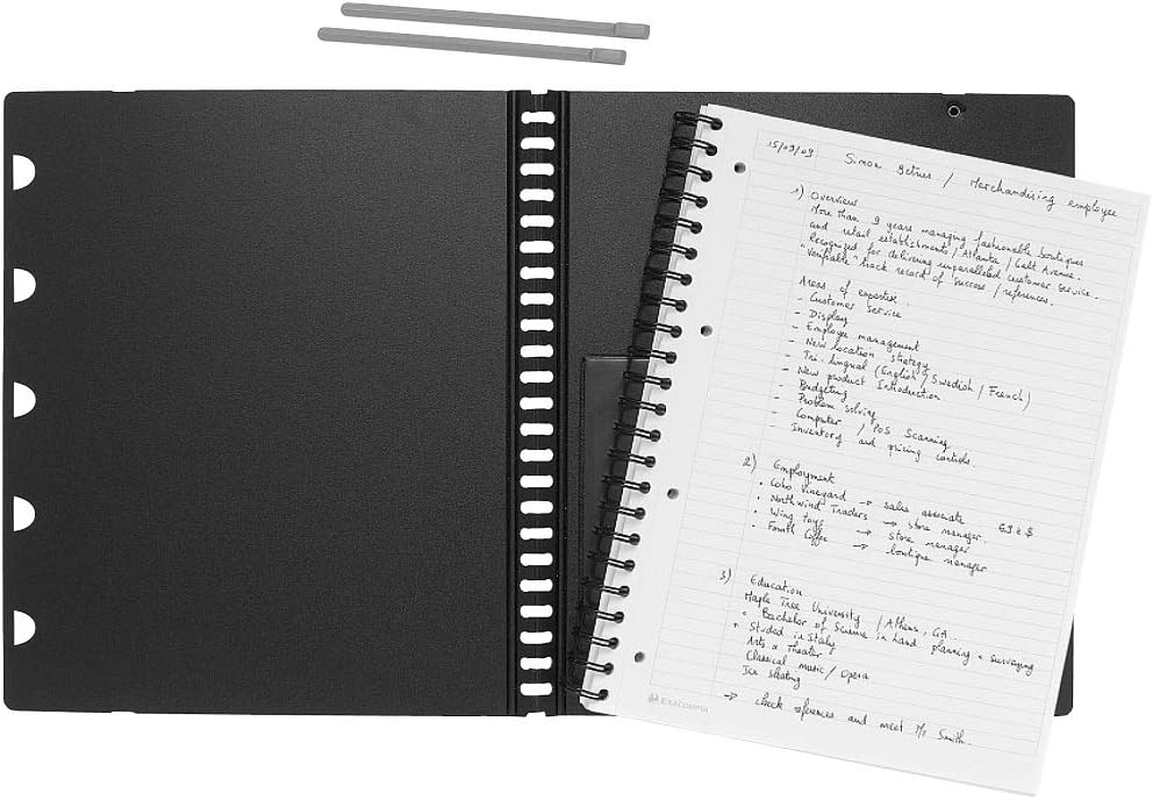 15/09/09 Simon / Merchandising employee
1) Overview
More than 9 years managing fashionable boutiques
and retail establishments / Atlanta / Galt Avenue.
Recognized for delivering unparalleled customer service.
Verifiable track record of success / references.
Areas of expertise.
- Customer service
- Display
- Employee management
- New location strategy
- Tri-lingual (English / Swedish / French)
- New product Introduction
- Budgeting
- Problem solving
- Computer / POS Scanning
- Inventory and pricing controls.
2) Employment
• Coho Vineyard → sales associate
• Northwind Traders → store manager.
• Wing Toys → store manager
• Fourth Coffee → boutique manager
3) Education
Maple Tree University / Athens, GA.
• Bachelor of Science in Land planning & surveying
• Studied in Italy
Arts & Theater
Classical music / Opera
Ice skating
→ check references and meet Mr Smith.
EXACOMPTA